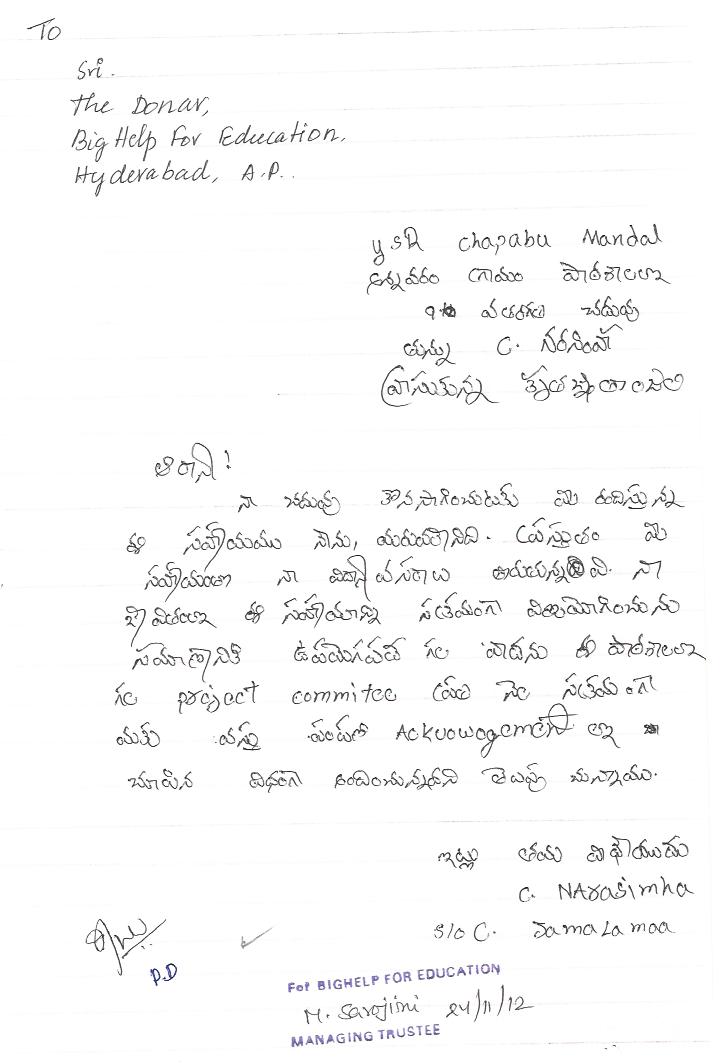 To
Sri.
The Donar,
Big Help For Education,
Hyderabad, A.P..
YSR Chapabu Mandal
అన్నవరం గ్రామం పాఠశాలలో
9 వ తరగతి చదువు
తున్న C. నరసింహ
వ్రాసుకున్న కృతజ్ఞతాంజలి
ఆర్యా!
నా చదువు కొనసాగించుటకు మీ రందిస్తున్న
ఈ సహాయము నేను, మరువలేనిది. ప్రస్తుతం మీ
సహాయంతో నా విద్యా వసరాలు తీరుచున్నవి. నా
జీవితంలో ఈ సహాయాన్ని సక్రమంగా వినియోగించుకును
సమాజానికి ఉపయోగపడ గల వాడను ఈ పాఠశాలలో
గల project commitee ప్రతి నెల సక్రమంగా
మాకు వస్తు పంపిణి Ackuowogement లో
చూపిన విధంగా అందించుచున్నదని తెలుపు చున్నాము.
ఇట్లు తమ విధేయుడు
C. NArasimha
S/o C. Jamalamaa
P.D
For BIGHELP FOR EDUCATION
M. Sarojini 24/11/12
MANAGING TRUSTEE